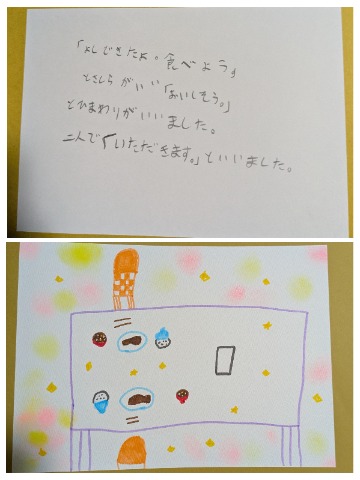 「よしできたよ。食べよう。」
とさくらがいい「おいしそう。」
とひまわりがいいました。
二人で「いただきます。」といいました。